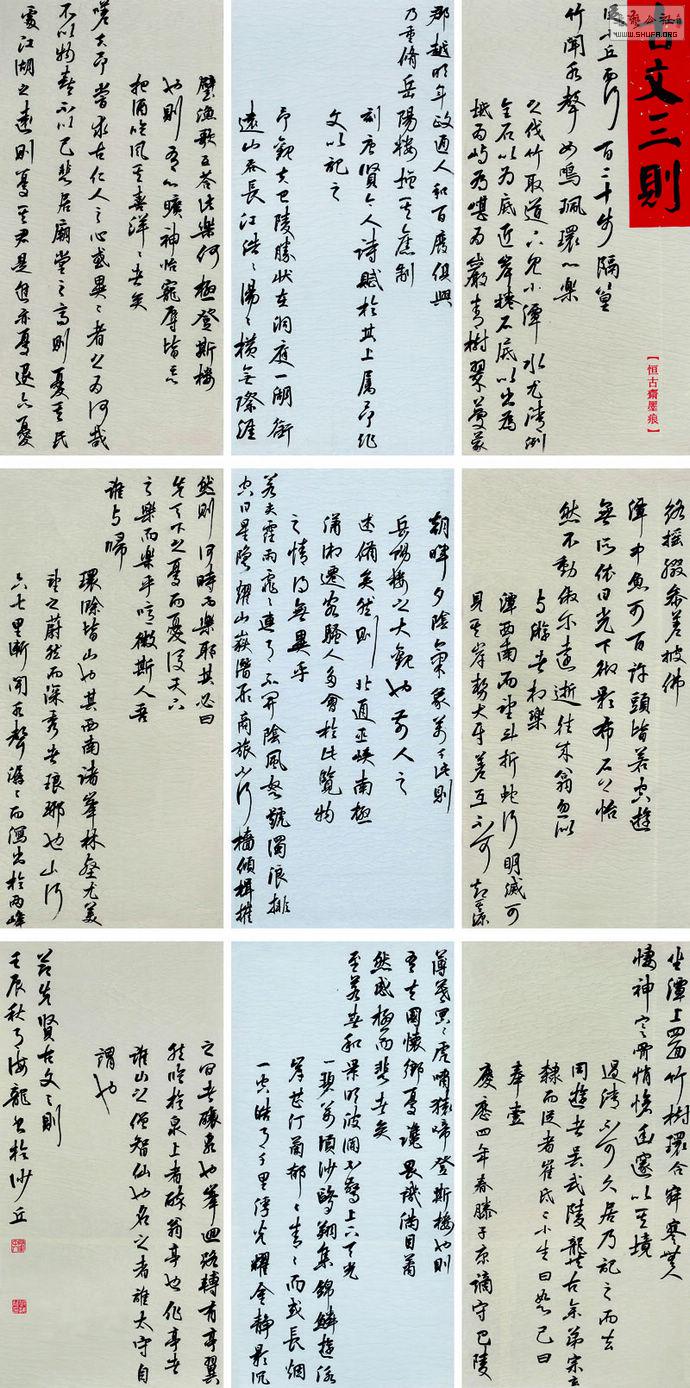 古文三則
【恒古齋墨痕】
從小丘西行百二十步隔篁
竹聞水聲如鳴珮環心樂
之伐竹取道下見小潭水尤清洌
全石以為底近岸捲石底以出為
坻為嶼為嵁為巖青樹翠蔓蒙
絡搖綴參差披拂
潭中魚可百許頭皆若空遊
無所依日光下徹影布石上怡
然不動俶爾遠逝往來翕忽似
與遊者相樂
潭西南而望斗折蛇行明滅可
見其岸勢犬牙差互不可知其源
坐潭上四面竹樹環合寂寥無人
悽神寒骨悄愴幽邃以其境
過清不可久居乃記之而去
同遊者吳武陵龔古余弟宗玄
隸而從者崔氏二小生曰恕己曰
奉壹
慶曆四年春滕子京謫守巴陵
郡越明年政通人和百廢俱興
乃重修岳陽樓增其舊制
刻唐賢今人詩賦於其上屬予作
文以記之
予觀夫巴陵勝狀在洞庭一湖銜
遠山吞長江浩浩湯湯橫無際涯
朝暉夕陰氣象萬千此則
岳陽樓之大觀也前人之
述備矣然則北通巫峽南極
瀟湘遷客騷人多會於此覽物
之情得無異乎
若夫霪雨霏霏連月不開陰風怒號濁浪排
空日星隱耀山嶽潛形商旅不行檣傾楫摧
薄暮冥冥虎嘯猿啼登斯樓也則
有去國懷鄉憂讒畏譏滿目蕭
然感極而悲者矣
至若春和景明波瀾不驚上下天光
一碧萬頃沙鷗翔集錦鱗遊泳
岸芷汀蘭郁郁青青而或長煙
一空皓月千里浮光耀金靜影沉
璧漁歌互答此樂何極登斯樓
也則有心曠神怡寵辱皆忘
把酒臨風其喜洋洋者矣
嗟夫予嘗求古仁人之心或異二者之為何哉
不以物喜不以己悲居廟堂之高則憂其民
處江湖之遠則憂其君是進亦憂退亦憂
然則何時而樂耶其必曰
先天下之憂而憂後天下
之樂而樂乎噫微斯人吾
誰與歸
環滁皆山也其西南諸峯林壑尤美
望之蔚然而深秀者琅琊也山行
六七里漸聞水聲潺潺而瀉出於兩峰
之間者釀泉也峯迴路轉有亭翼
然臨於泉上者醉翁亭也作亭者
誰山之僧智仙也名之者誰太守自
謂也
先賢古文三則
壬辰秋月海龍書於沙丘
WWW.SHUFA.ORG